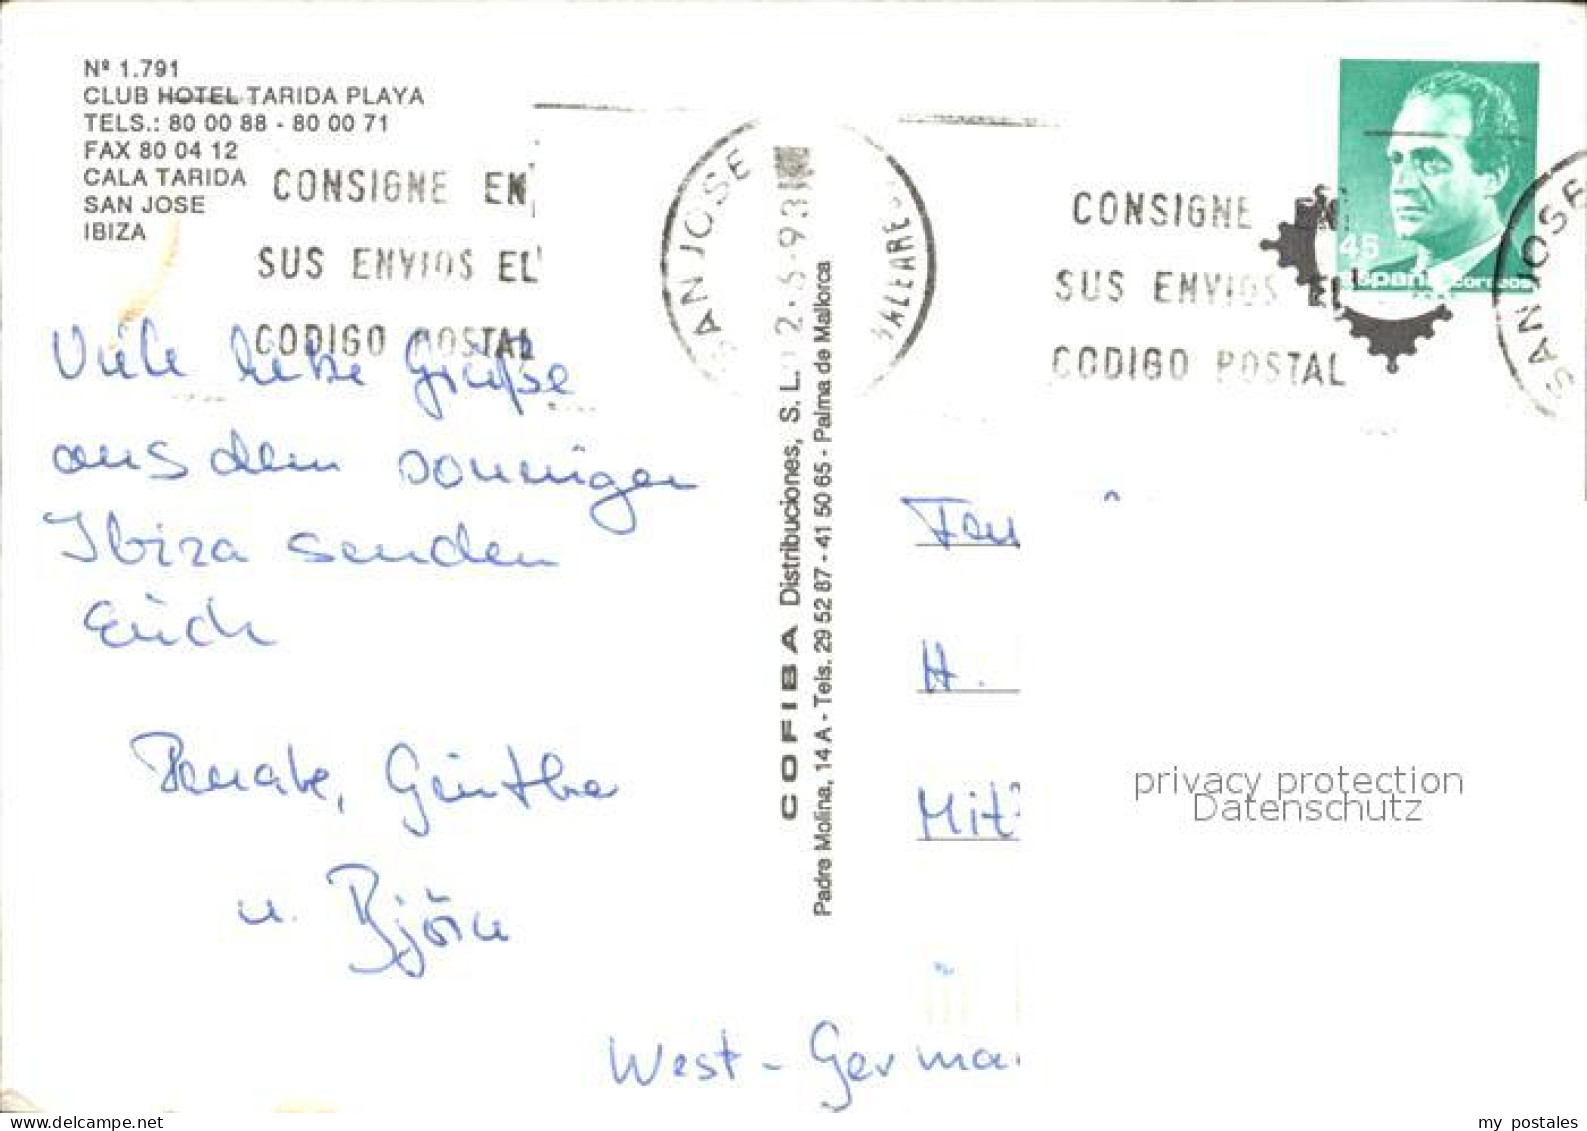 Nº 1.791
CLUB HOTEL TARIDA PLAYA
TELS.: 80 00 88 - 80 00 71
FAX 80 04 12
CALA TARIDA
SAN JOSE
IBIZA
CONSIGNE EN
SUS ENVIOS EL
CODIGO POSTAL
SAN JOSE
BALEARES
93
CONSIGNE EN
SUS ENVIOS EL
CODIGO POSTAL
45
España correos
SAN JOSE
Viele liebe Grüße
aus dem sonnigen
Ibiza senden
Euch
Renate, Günther
u. Björn
COFIBA Distribuciones, S. L.
Padre Molina, 14 A - Tels. 29 52 87 - 41 50 65 - Palma de Mallorca
Fam
H.
Mit
West-Germa
privacy protection
Datenschutz
www.delcampe.net
my_postales